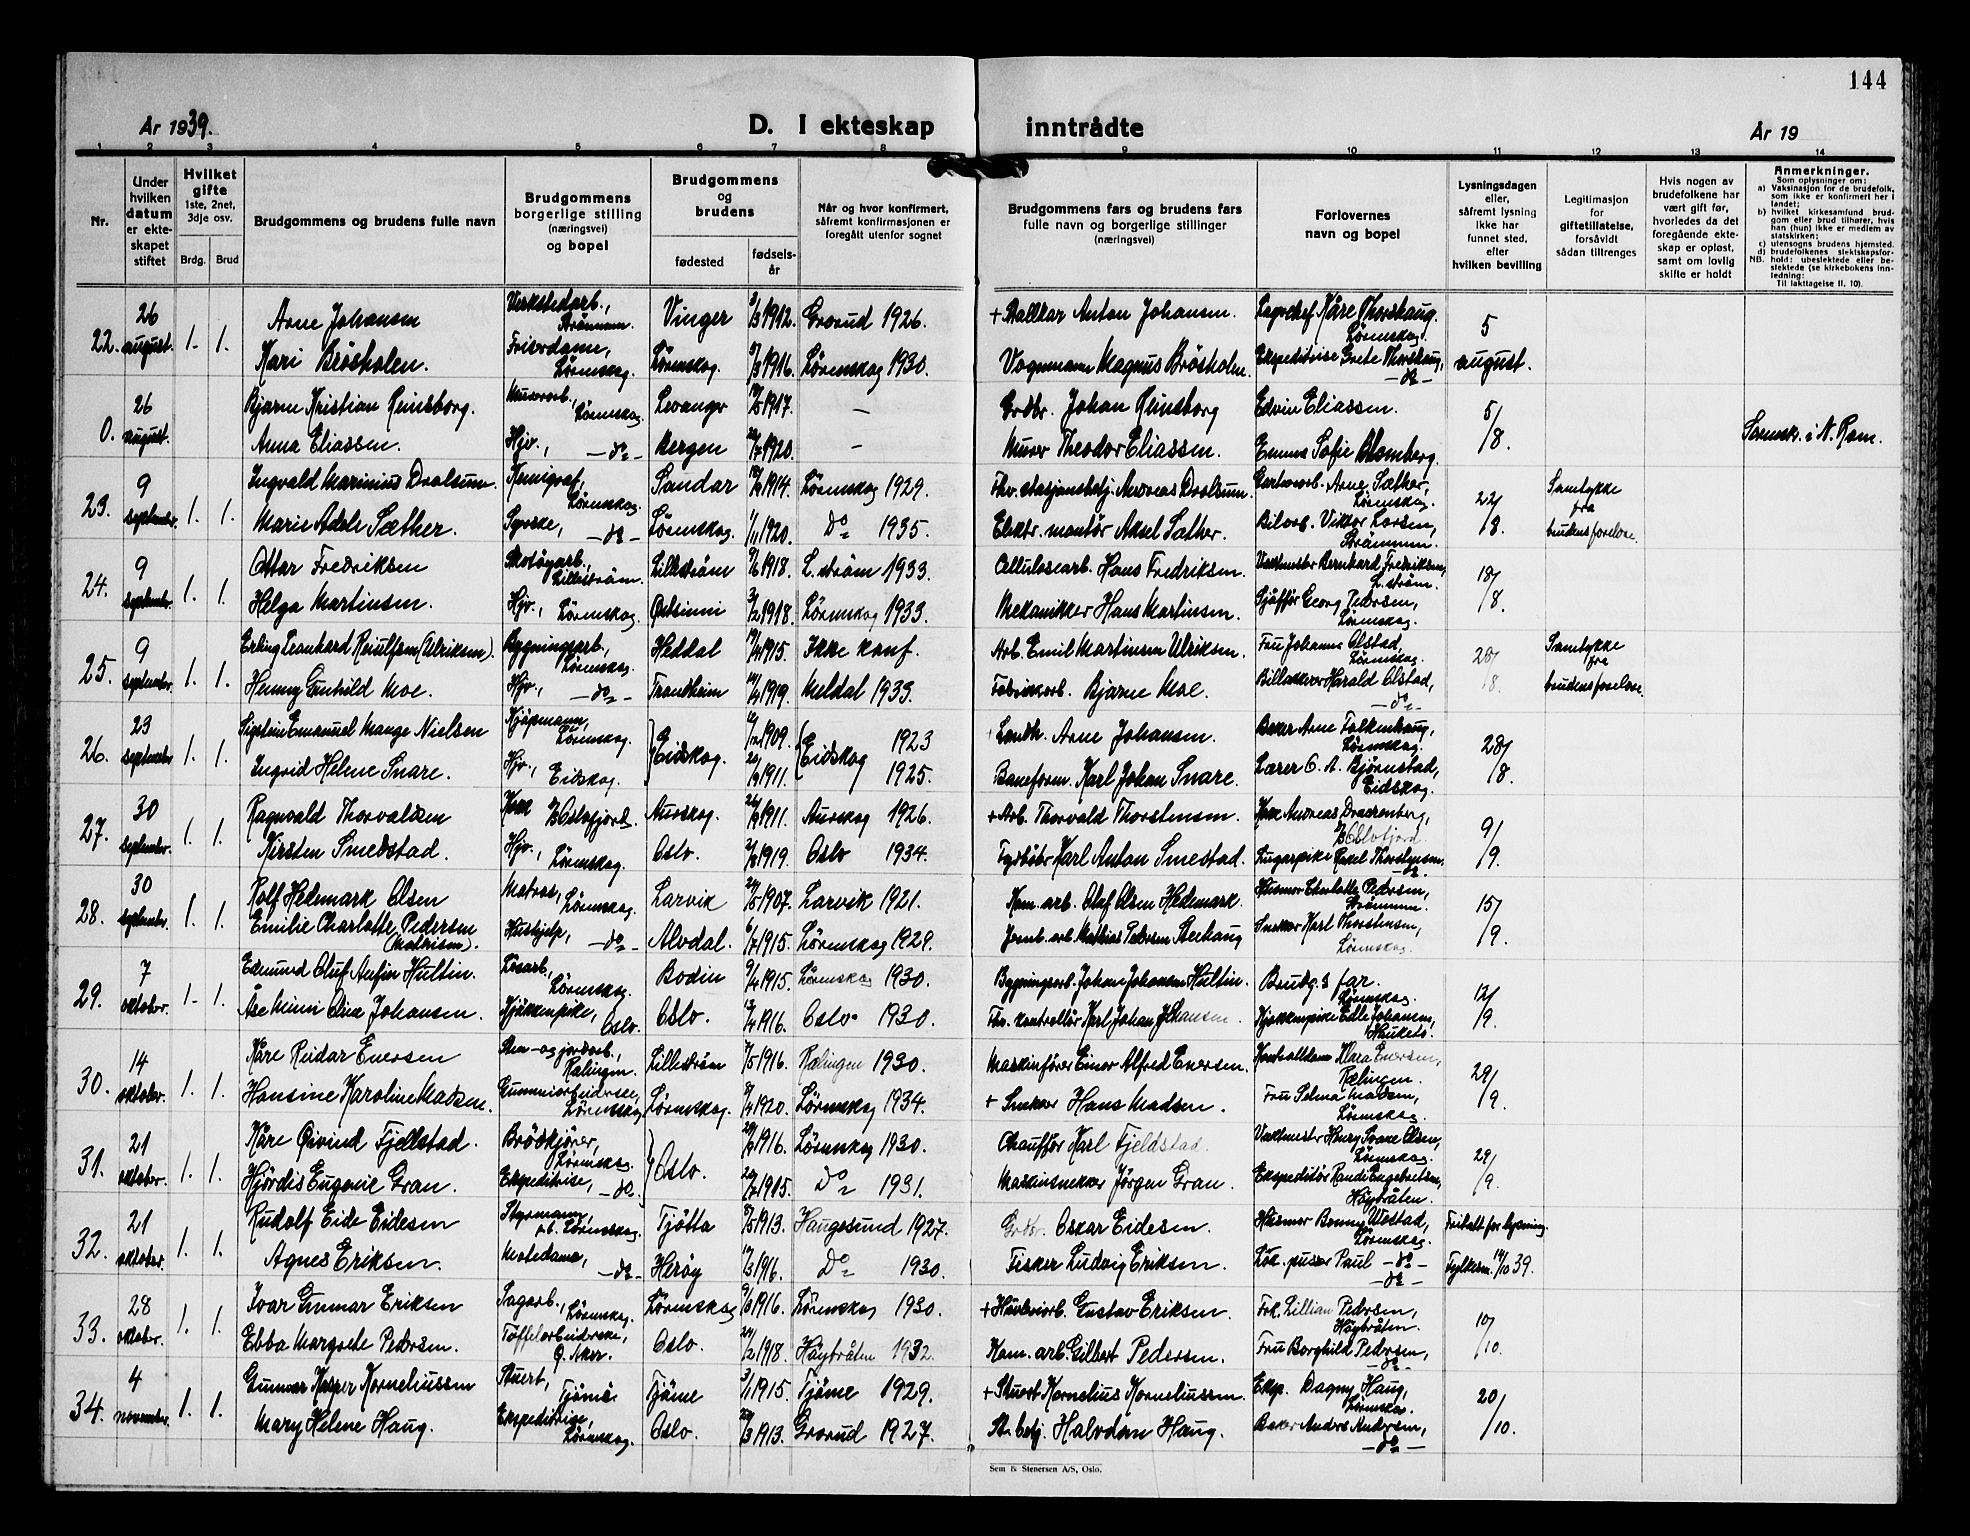 144
År 1939.
D. I ekteskap inntrådte
År 19
1 2 3 4 5 6 7 8 9 10 11 12 13 14
Nr.
Under hvilken datum er ekteskapet stiftet
Hvilket gifte 1ste, 2net, 3dje osv.
Brdg. Brud
Brudgommens og brudens fulle navn
Brudgommens borgerlige stilling (næringsvei) og bopel
Brudgommens og brudens
fødested
fødselsår
Når og hvor konfirmert, såfremt konfirmasjonen er foregått utenfor sognet
Brudgommens fars og brudens fars fulle navn og borgerlige stillinger (næringsvei)
Forlovernes navn og bopel
Lysningsdagen eller, såfremt lysning ikke har funnet sted, efter hvilken bevilling
Legitimasjon for giftetillatelse, forsåvidt sådan tiltrenges
Hvis nogen av brudefolkene har vært gift før, hvorledes da det foregående ekteskap er opløst, samt om lovlig skifte er holdt
Anmerkninger.
Som oplysninger om:
a) Vaksinasjon for de brudefolk, som ikke er konfirmert her i landet;
b) hvilket kirkesamfund brudgom eller brud tilhører, hvis han (hun) ikke er medlem av statskirken;
c) utensogns brudens hjemsted.
d) brudefolkenes slektskapsforhold: ubeslektede eller beslektede (se kirkebokens innledning:
NB. Til Iakttagelse II. 10).
22. 26 august. 1. 1. Arne Johansen Verkstedarb., Strømmen. Vinger 1912. Grorud 1926. + Stallkar Anton Johansen. Lagerchef Kåre Thorshaug. Lørenskog. 5 august.
Kari Brøsholen. Frisørdame, Lørenskog. Lørenskog. 1916. Lørenskog 1930. Vognmann Magnus Brøsholen. Ekspeditrise Grete Thorshaug, -do-
0. 26 august. Bjarne Kristian Reinsborg. Murerarb., Lørenskog. Levanger 1917. - Grdbr. Johan Reinsborg Edvin Eliassen. 5/8.
Anna Eliassen. Hjv., -do- Bergen 1920. - Murer Theodor Eliassen. Emma Sofie Blomberg. Svensk. i N. Rom.
23. 9 september. 1. 1. Ingvald Marinius Dvolsum. Kemigraf, Lørenskog. Sandar 1914. Lørenskog 1929. Fhv. stasjonsbetj. Andreas Dvolsum. Gartnerarb. Arne Sæther, Lørenskog. 22/8 Samtykke fra brudens forelsre.
Marie Adele Sæther. Syerske, -do- Lørenskog. 1/11 1920. Do 1935. Elektr. montør Aksel Sæther. Bilarb. Viktor Larsen, Strømmen.
24. 9 september. 1. 1. Ottar Fredriksen Skotøyarb., Lillestrøm. Lillestrøm 1918. L.strøm 1933. Cellulosearb. Hans Fredriksen. Verkmester Bernhard Fredriksen, L.strøm. 18/8.
Helga Martinsen. Hjv., Lørenskog. 1918. Lørenskog 1933. Mekanikker Hans Martinsen. Sjåfför Georg Pedersen, Lørenskog.
25. 9 september. 1. 1. Erling Leonhard Reinulfsen (Ulriksen). Bygningsarb., Lørenskog. Heddal 1915. Ikke konf. Arb. Emil Martinsen Ulriksen. Fru Johanne Olstad, Lørenskog. Samtykke fra
Henny Gunhild Moe. Hjv., -do- Trondheim 1919. Meldal 1933. Fabrikarb. Bjarne Moe. Harald Olstad, -do-
26. 23 september 1. 1. Emanuel Mange Nielsen Kjøpmann, Lørenskog. Eidskog. 1909. Eidskog 1923 Landh. Arne Johansen. Baker Arne Falkenhaug, Lørenskog. 28/8.
Ingrid Helene Snare. Hjv., Eidskog. 1911. 1925. Baneform. Karl Johan Snare. Lærer O. A. Bjørnstad, Eidskog.
27. 30 september. 1. 1. Ragnvald Thorvaldsen Kokk Oslofjord. Aurskog. 1911. Aurskog 1926. + Arb. Thorvald Thorstensen. Kokk Andreas Drachenberg, Oslofjord 9/9.
Kirsten Smedstad. Hjv., Lørenskog. Oslo. 1919. Oslo 1934. Karl Anton Smestad. Lugarpike Rakel Thorstensen. -do-
28. 30 september 1. 1. Rolf Hedemark Olsen Matros, Lørenskog. Larvik 1907. Larvik 1921. Kom. arb. Olaf Olsen Hedemark. Husmor Charlotte Pedersen, Strømmen. 15/9.
Emilie Charlotte Pedersen Hushjelp, -do- Alvdal. 1915. Lørenskog 1929. Jernb. arb. Mathias Pedersen Steihaug Snekker Karl Thorstensen, Lørenskog.
29. 7 oktober. 1. 1. Edmund Oluf Anfin Hultin. Løsarb., Lørenskog. Bodin 1915. Lørenskog 1930. Bygningsarb. Johan Johansen Hultin. Brudg.s far. Lørenskog. 12/9.
Åse Mimi Oline Johansen. Kjøkkenpike, Oslo. Oslo. 1916. Oslo. 1930. Fhv. kontrollör Karl Johan Johansen. Kjøkkenpike Edle Johansen,
30. 14 oktober. 1. 1. Kåre Reidar Enersen Sten- og jordarb., Rælingen. Lillestrøm 1916. Rælingen 1930. Maskinfører Einar Alfred Enersen. Kontrolldame Klara Enersen, Rælingen. 29/9.
Hansine Karoline Madsen. Gummiarbeiderske, Lørenskog Lørenskog. 1920. Lørenskog 1934. + Snekker Hans Madsen. Fru Selma Madsen, Lørenskog.
31. 21 oktober. 1. 1. Kåre Øivind Fjellstad. Brødkjører, Lørenskog. Oslo. 1916. Lørenskog 1930. Chauffør Karl Fjeldstad. Verkmester Henry Svane Olsen, Lørenskog. 29/9.
Hjørdis Eugenie Gran. Ekspeditrise, -do- 1915. Do 1931. Maskinsnekker Jørgen Gran. Ekspeditør Randi Engebretsen, Høybråten.
32. 21 oktober. 1. 1. Rudolf Eide Eidesen Styrmann, Lørenskog. Tjøtta 1913. Haugesund 1927. Grdbr. Oskar Eidesen. Husmor Benny Westad, Lørenskog. Fritatt for lysning.
Agnes Eriksen. Motedame, -do- Herøy 1916. Do 1930. Fisker Ludvig Eriksen. Lok. pusser Paul -do- -do- Fylkesm. 14/10 39.
33. 28 oktober. 1. 1. Ivar Gunnar Eriksen Sagarb., Lørenskog. Lørenskog 1916. Lørenskog 1930. + Høvleriarb. Gustav Eriksen. Frk. Lillian Pedersen, Høybråten. 10/10.
Ebba Margrethe Pedersen. Tøffelarbeiderske, Ø. Aker. Oslo. 1918. Høybråten 1932. Kom. arb. Gilbert Pedersen. Fru Borghild Pedersen, -do-
34. 4 november. 1. 1. Gunnar Kasper Korneliussen Stuert, Tjøme Tjøme 1915. Tjøme 1929. + Stuert Kornelius Korneliussen. Eksp. Dagny Haug, Lørenskog. 20/10.
Mary Helene Haug. Ekspeditrise, Lørenskog. Oslo. 1913. Grorud 1927. St. betj. Halvdan Haug. Baker Anders Andersen, -do-
Sem & Stenersen A/S, Oslo.